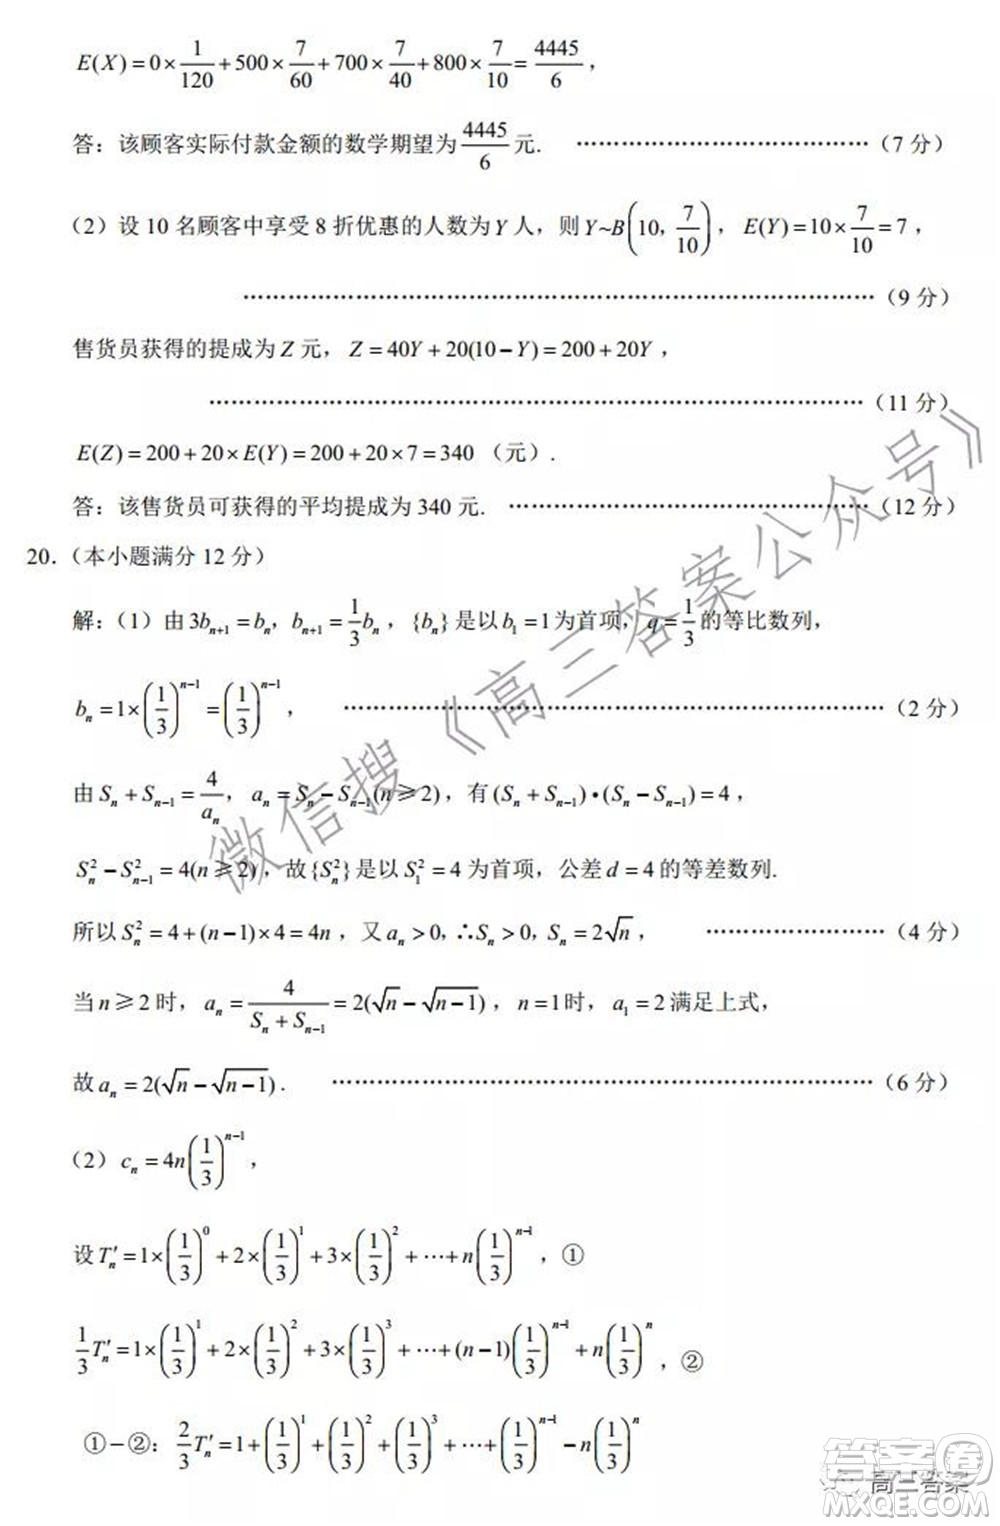 E(X)=0×1/120+500×7/60+700×7/40+800×7/10=4445/6，
答：该顾客实际付款金额的数学期望为4445/6元. ……………………………………（7 分）
（2）设 10 名顾客中享受 8 折优惠的人数为 Y 人，则 Y~B(10，7/10)，E(Y)=10×7/10=7，
……………………………………………………………………（9 分）
售货员获得的提成为 Z 元，Z=40Y+20(10−Y)=200+20Y，
……………………………………………………………………（11 分）
E(Z)=200+20×E(Y)=200+20×7=340（元）.
答：该售货员可获得的平均提成为 340 元. ……………………………………（12 分）
20.（本小题满分 12 分）
解：（1）由 3bₙ₊₁=bₙ，bₙ₊₁=1/3 bₙ，{bₙ}是以 b₁=1 为首项，q=1/3 的等比数列，
bₙ=1×(1/3)ⁿ⁻¹=(1/3)ⁿ⁻¹， ……………………………………（2 分）
由 Sₙ+Sₙ₋₁=4/aₙ，aₙ=Sₙ−Sₙ₋₁(n≥2)，有(Sₙ+Sₙ₋₁)•(Sₙ−Sₙ₋₁)=4，
Sₙ²−Sₙ₋₁²=4(n≥2)，故{Sₙ²}是以 S₁²=4 为首项，公差 d=4 的等差数列.
所以 Sₙ²=4+(n−1)×4=4n，又 aₙ>0，∴Sₙ>0，Sₙ=2√n， ……………………（4 分）
当 n≥2 时，aₙ=4/(Sₙ+Sₙ₋₁)=2(√n−√(n−1))，n=1时，a₁=2 满足上式，
故 aₙ=2(√n−√(n−1)). ……………………………………（6 分）
（2）cₙ=4n(1/3)ⁿ⁻¹，
设 Tₙ′=1×(1/3)⁰+2×(1/3)¹+3×(1/3)²+⋯+n(1/3)ⁿ⁻¹，①
1/3 Tₙ′=1×(1/3)¹+2×(1/3)²+3×(1/3)³+⋯+(n−1)(1/3)ⁿ⁻¹+n(1/3)ⁿ，②
①−②：2/3 Tₙ′=1+(1/3)¹+(1/3)²+(1/3)³+⋯+(1/3)ⁿ⁻¹−n(1/3)ⁿ
微信搜《高三答案公众号》
高三答案
答案圈
MXQE.COM